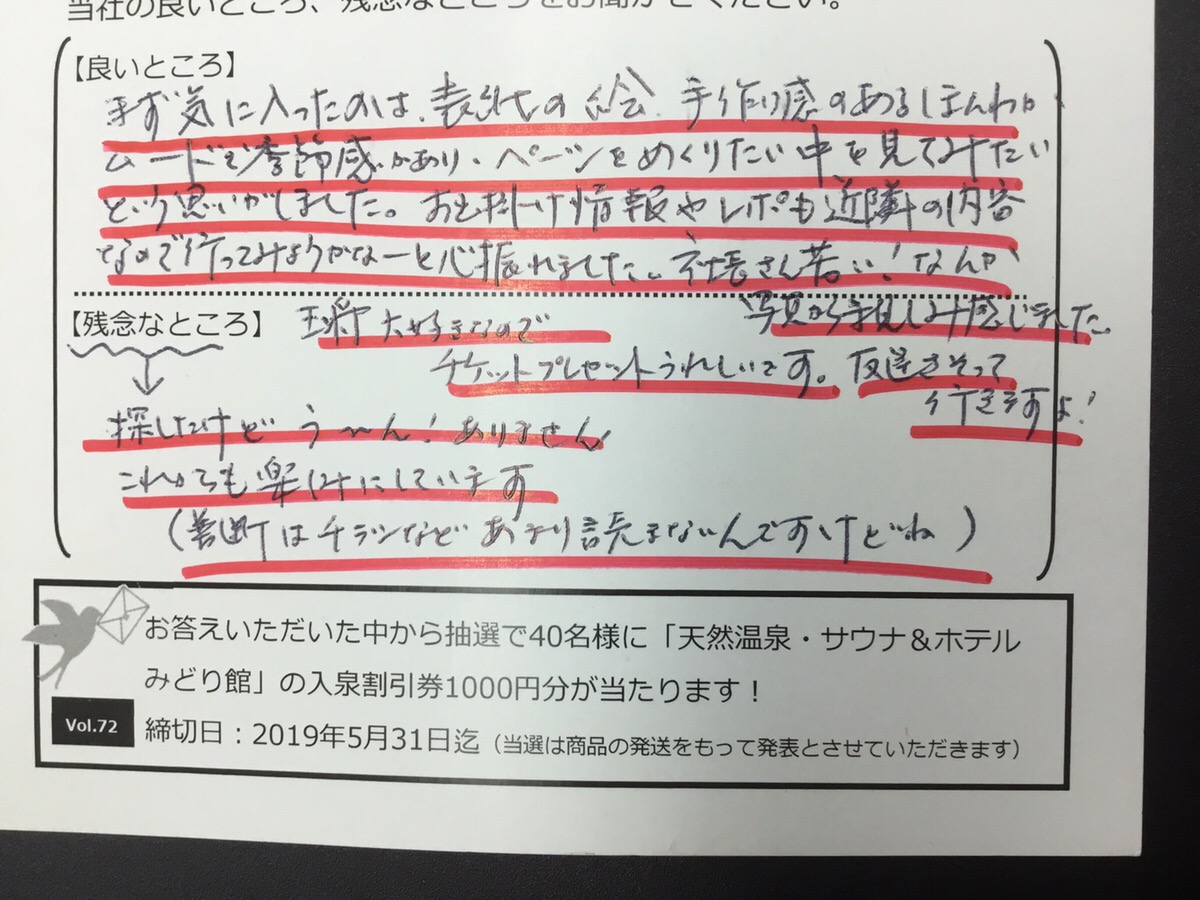 当社の良いところ、残念なところをお聞かせください。
【良いところ】
まず気に入ったのは、表紙の絵、手作り感のあるほんわか
ムードで季節感があり、ページをめくりたい中を見てみたい
という思いがしました。お出掛け情報やレポも近隣の内容
なので行ってみようかなーと心揺れました。社長さん若い!なんか
写真から親しみ感じました。
【残念なところ】
大好きなので
チケットプレゼントうれしいです。友達さそって
行きますよ!
探したけどう〜ん!ありません
これからも楽しみにしています
(普段はチラシなどあまり読まないんですけどね)
お答えいただいた中から抽選で40名様に「天然温泉・サウナ&ホテル
みどり館」の入泉割引券1000円分が当たります!
Vol.72
締切日：2019年5月31日迄（当選は商品の発送をもって発表とさせていただきます）